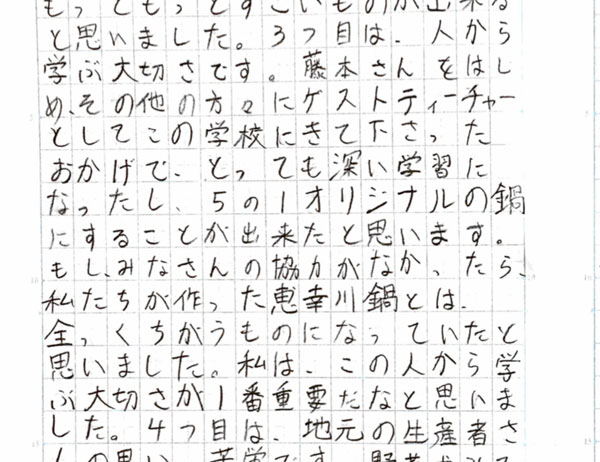 もっともっとすごいものが出来る
と思いました。3つ目は、人から
学ぶ大切さです。藤本さんをはし
め、その他の方々にゲストティーチャー
としてこの学校にきて下さった
おかげで、とっても深い学習に
なったし、5の1オリジナルの鍋
にすることが出来たと思います。
もし、みなさんの協力がなかったら、
私たちが作った恵幸川鍋とは、
全っくちがうものになっていたと
思いました。私は、この人から学
ぶ大切さが1番重要だなと思いま
した。4つ目は、地元の生産者さ
んの思い、苦労です。野菜